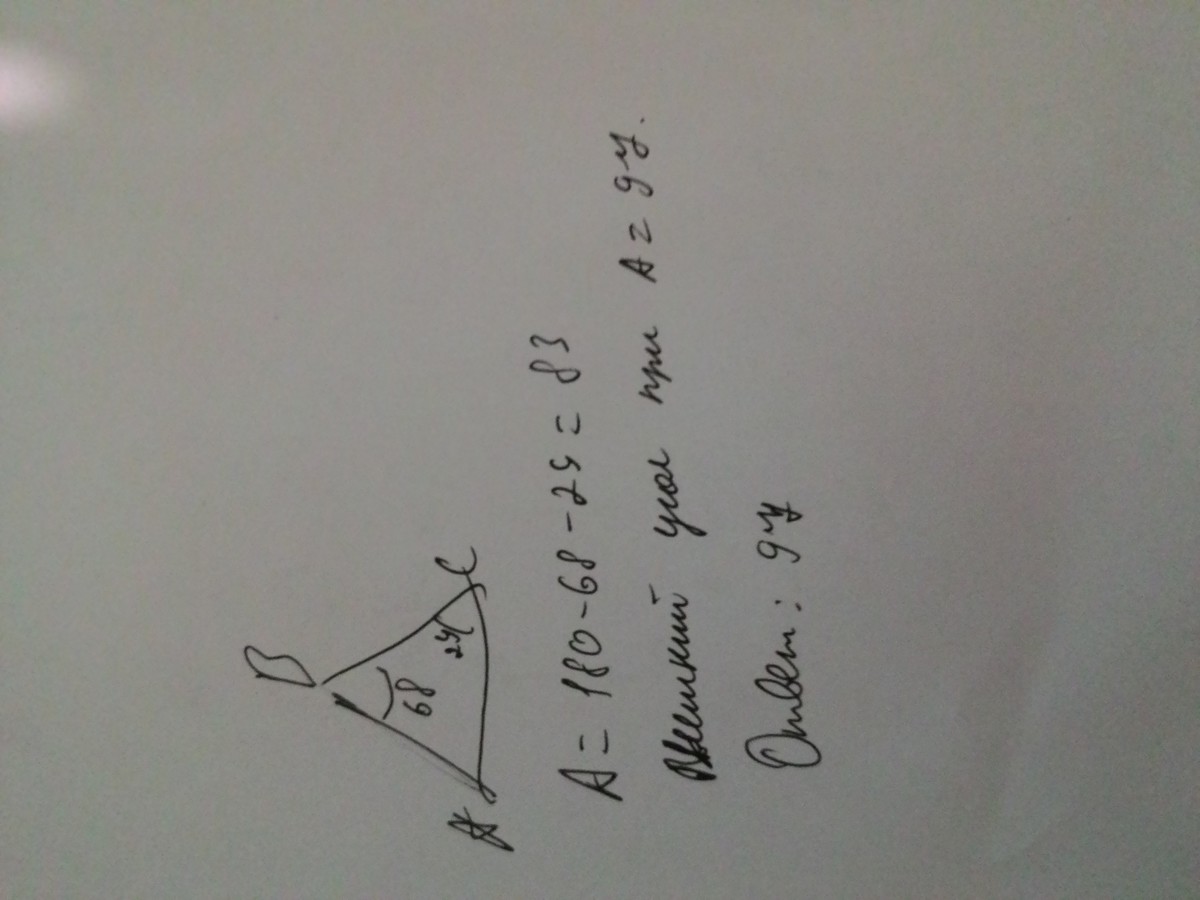 B
68
29
A
C
A = 180 - 68 - 29 = 83
Внешний угол при A = 97.
Ответ: 97